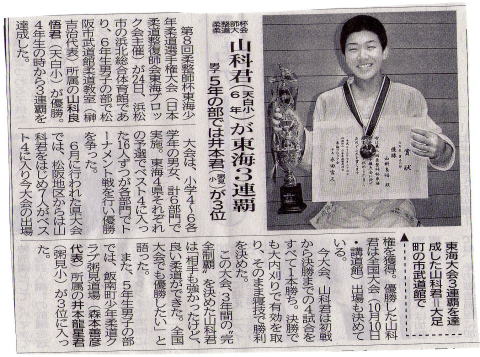 柔整師杯
柔道大会
山科君(天白小6年)が東海3連覇
男子5年の部では井本君(粥見小)が3位
第8回柔整師杯東海少
年柔道選手権大会(日本
柔道整復師会東海ブロッ
ク会主催)が24日、浜松
市の浜北総合体育館であ
り、6年生男子の部で松
阪市武道館柔道教室(榊
吉治代表)所属の山科良
悟君(天白小)が優勝。
4年生の時から3連覇を
達成した。
大会は、小学4〜6各
学年の男女、計6部門で
実施。東海4県それぞれ
の予選でベスト4に入っ
た16人ずつが各部門でト
ーナメント戦を行い優勝
を争った。
6月に行われた県大会
では、松阪地区からは山
科君をはじめ7人がベス
ト4に入り今大会の出場
権を獲得。優勝した山科
君は全国大会(10月10日
・講道館)出場も決めて
いる。
山科君は初戦
から決勝までの4試合を
すべて1本勝ち。決勝で
も大内刈りで有効を取
り、そのまま寝技で勝利
を決めた。
この大会、3年間の“完
全制覇”を決めた山科君
は「相手も強かったけど、
良い柔道ができた。全国
大会でも優勝したい」と
語った。
また、5年生男子の部
では、飯南町少年柔道ク
ラブ粥見道場(森本善彦
代表)所属の井本龍星君
(粥見小)が3位に入っ
た。
東海大会3連覇を達
成した山科君=大足
町の市武道館で
賞状
優勝